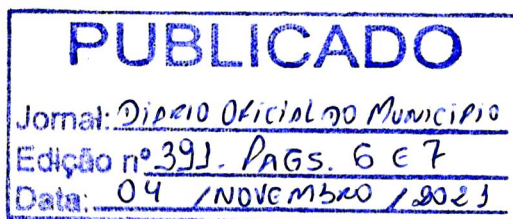 PUBLICADO
Jornal: DIÁRIO OFICIAL DO MUNICÍPIO
Edição nº 391. PAGS. 6 E 7
Data: 04 / NOVEMBRO / 2021